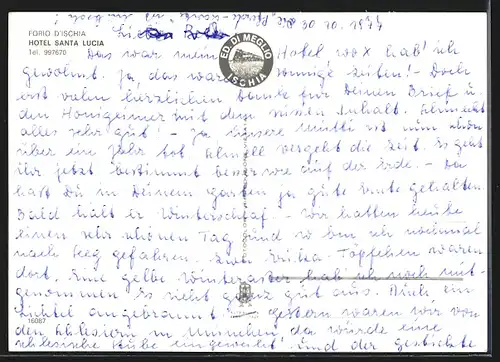 30 10. 1974
FORIO D'ISCHIA
HOTEL SANTA LUCIA
Tel. 997670
ED. DI MEGLIO
ISCHIA
Das war mein Hotel wo x hab' ich
gewohnt. Ja das war sonnige Zeiten! - Doch
erst vielen herzlichen Danke für Deinen Brief u.
den Honigeimer mit dem süssen Inhalt. Schmeckt
alles sehr gut! - Ja unsere Mutti ist nun schon
über ein Jahr tot schnell vergeht die Zeit. Es geht
ihr jetzt bestimmt besser wie auf der Erde. - Da
hast Du in Deinem Garten ja gute Ernte gehalten.
Bald hält er Winterschlaf. - Wir hatten heute
einen sehr schönen Tag und so bin ich nochmal
nach Seeg gefahren. Zwei Erika-Töpfchen waren
dort. Eine gelbe Winteraster hab ich noch mit-
genommen. Es sieht ganz gut aus. Auch ein
angebrannt. - gestern waren wir von
den Schlesiern in München da würde eine
schlesische Stube eingeweiht. Und der
16087